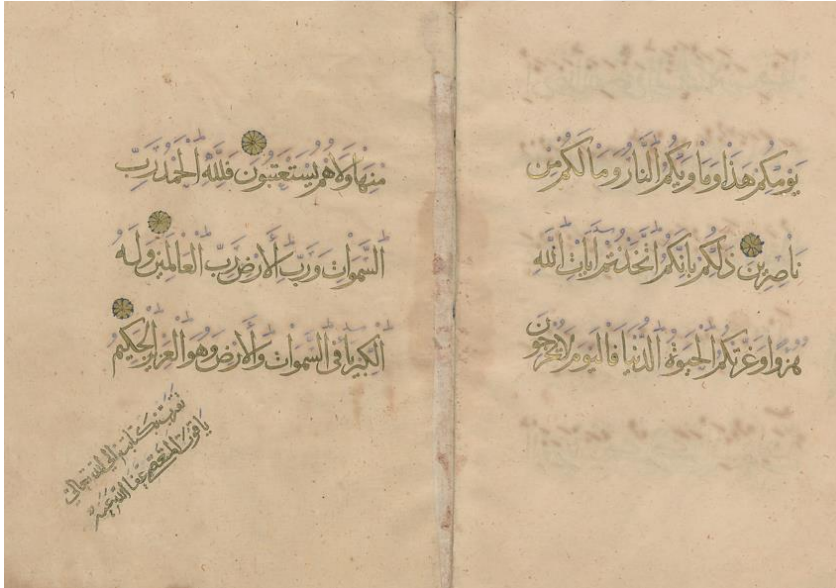 يَوْمِكُمْ هَذَا وَمَأْوَيكُمُ النَّارُ وَمَا لَكُمْ مِن
نَاصِرِينَ ذَلِكُم بِأَنَّكُمُ اتَّخَذْتُمْ آيَاتِ اللَّهِ
هُزُوًا وَغَرَّتْكُمُ الْحَيَوةُ الدُّنْيَا فَالْيَوْمَ لَا يُخْرَجُونَ
مِنْهَا وَلَا هُمْ يُسْتَعْتَبُونَ فَلِلَّهِ الْحَمْدُ رَبِّ
السَّمَوَاتِ وَرَبِّ الْأَرْضِ رَبِّ الْعَالَمِينَ وَلَهُ
الْكِبْرِيَاءُ فِي السَّمَوَاتِ وَالْأَرْضِ وَهُوَ الْعَزِيزُ الْحَكِيمُ
الى الله تعالى
ياقوت المستعصمي عفا الله عنه